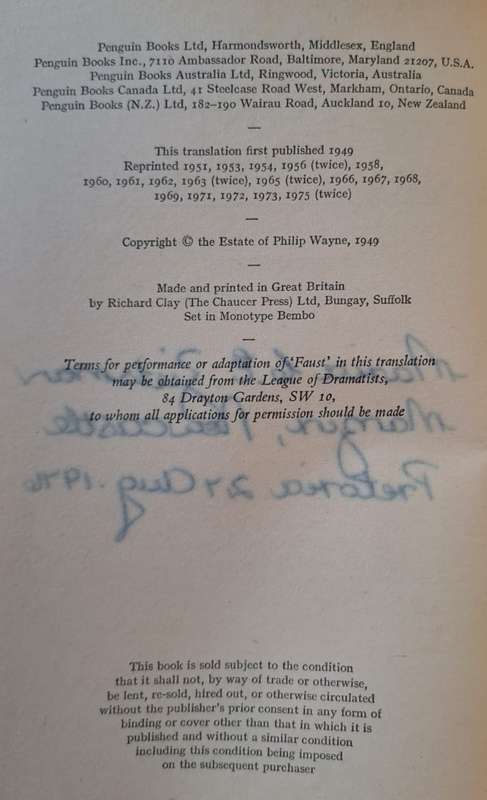 Penguin Books Ltd, Harmondsworth, Middlesex, England
Penguin Books Inc., 7110 Ambassador Road, Baltimore, Maryland 21207, U.S.A.
Penguin Books Australia Ltd, Ringwood, Victoria, Australia
Penguin Books Canada Ltd, 41 Steelcase Road West, Markham, Ontario, Canada
Penguin Books (N.Z.) Ltd, 182–190 Wairau Road, Auckland 10, New Zealand
—
This translation first published 1949
Reprinted 1951, 1953, 1954, 1956 (twice), 1958,
1960, 1961, 1962, 1963 (twice), 1965 (twice), 1966, 1967, 1968,
1969, 1971, 1972, 1973, 1975 (twice)
—
Copyright © the Estate of Philip Wayne, 1949
—
Made and printed in Great Britain
by Richard Clay (The Chaucer Press) Ltd, Bungay, Suffolk
Set in Monotype Bembo
—
Terms for performance or adaptation of ‘Faust’ in this translation
may be obtained from the League of Dramatists,
84 Drayton Gardens, SW 10,
to whom all applications for permission should be made
Pretoria 27 Aug. 1976
This book is sold subject to the condition
that it shall not, by way of trade or otherwise,
be lent, re-sold, hired out, or otherwise circulated
without the publisher's prior consent in any form of
binding or cover other than that in which it is
published and without a similar condition
including this condition being imposed
on the subsequent purchaser